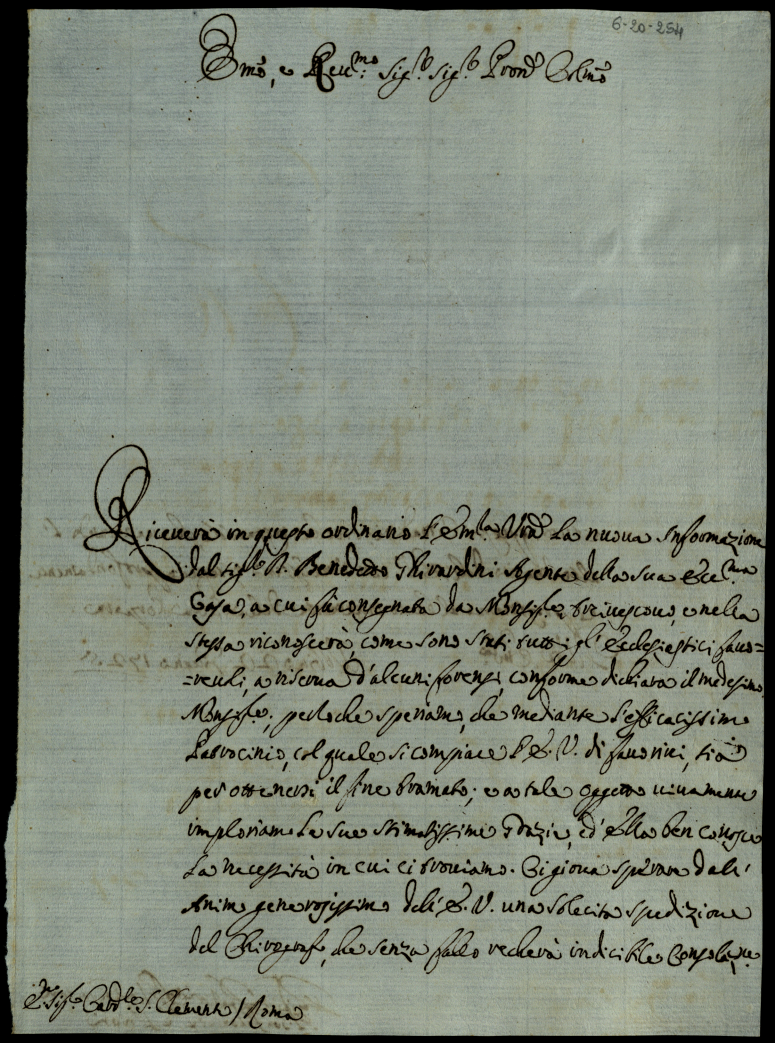 6-20-254
Emō, e Reuᵐᵒ: Sigʳ. Sigʳ. Pronē Colmō
Riceuerà in questo ordinario l'Emᶻᵃ Vrā La nuoua Informazione
dal Sigʳ. D. Benedetto Ghirardini Agente della sua Eccᵐᵃ
Casa, a cui fù consegnata da Monsigʳᵉ Arciuescouo, e nella
stessa riconoscerà, come sono stati tutti gl'Ecclesiastici fauo=
=reuoli, a riserua d'alcuni forensi, conforme dichiara il medesimo
Monsigʳᵉ, perloche speriamo, che mediante l'efficacissimo
Patrocinio, col quale si compiace l'E. V. di fauorirci, sia
per ottenersi il fine bramato; e a tale oggetto viuamente
imploriamo Le sue stimatissime Grazie, ed' Ella ben conosce
La necessità in cui ci trouiamo. Ci gioua sperare dall'
Animo generosissimo dell'E. V. una solecita spedizione
del Chirografo, che senza fallo recherà indicibile Consolaᶻⁿᵉ
Sigʳ. Cardˡᵉ S. Clemente / Roma